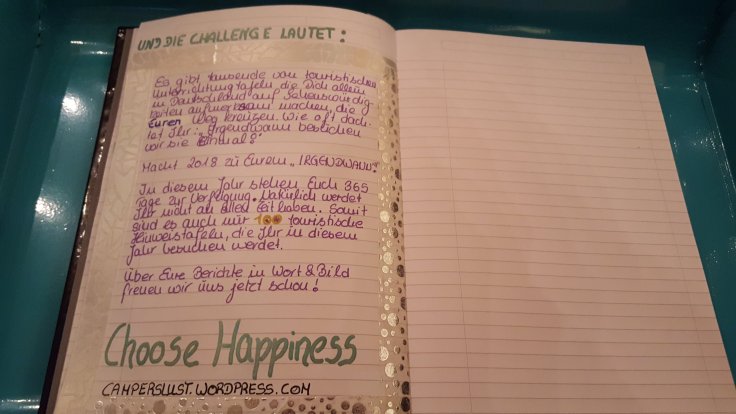 UND DIE CHALLENGE LAUTET:
Es gibt tausende von touristischen
Unterrichtungstafeln, die Dich allein
in Deutschland auf Sehenswürdig-
keiten aufmerksam machen, die
Euren Weg kreuzen. Wie oft dach-
tet Ihr: „Irgendwann besuchen
wir sie einmal?"
Macht 2018 zu Eurem „IRGENDWANN"!
In diesem Jahr stehen Euch 365
Tage zur Verfügung. Natürlich werdet
Ihr nicht an allen Zeit haben. Somit
sind es auch nur 100 touristische
Hinweistafeln, die Ihr in diesem
Jahr besuchen werdet.
Über Eure Berichte in Wort & Bild
freuen wir uns jetzt schon!
Choose Happiness
CAMPERSLUST.WORDPRESS.COM